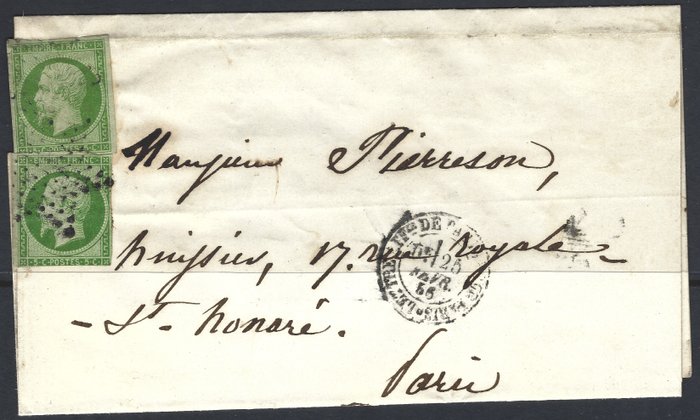 EMPIRE FRANC
5·C·POSTES·5·C
EMPIRE FRANC
5·C·POSTES·5·C
Monsieur Pierreson,
huissier, 17, rue Royale-
- St- honoré.
Paris
25
56